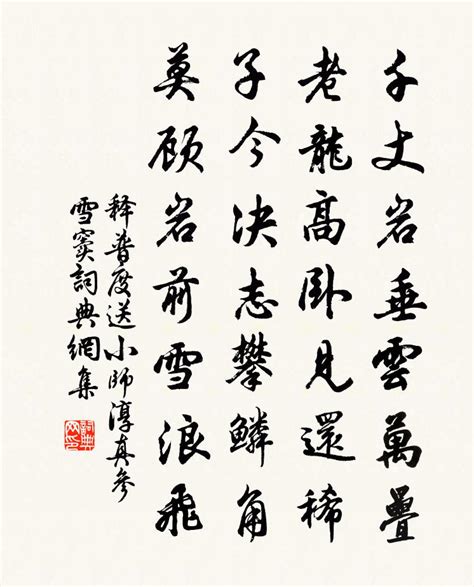 千丈岩垂雲萬疊
老龍高卧見還稀
子今決志攀鱗角
莫顧岩前雪浪飛
釋普度送小師淳真參
雪竇詞典網集
詞典網印